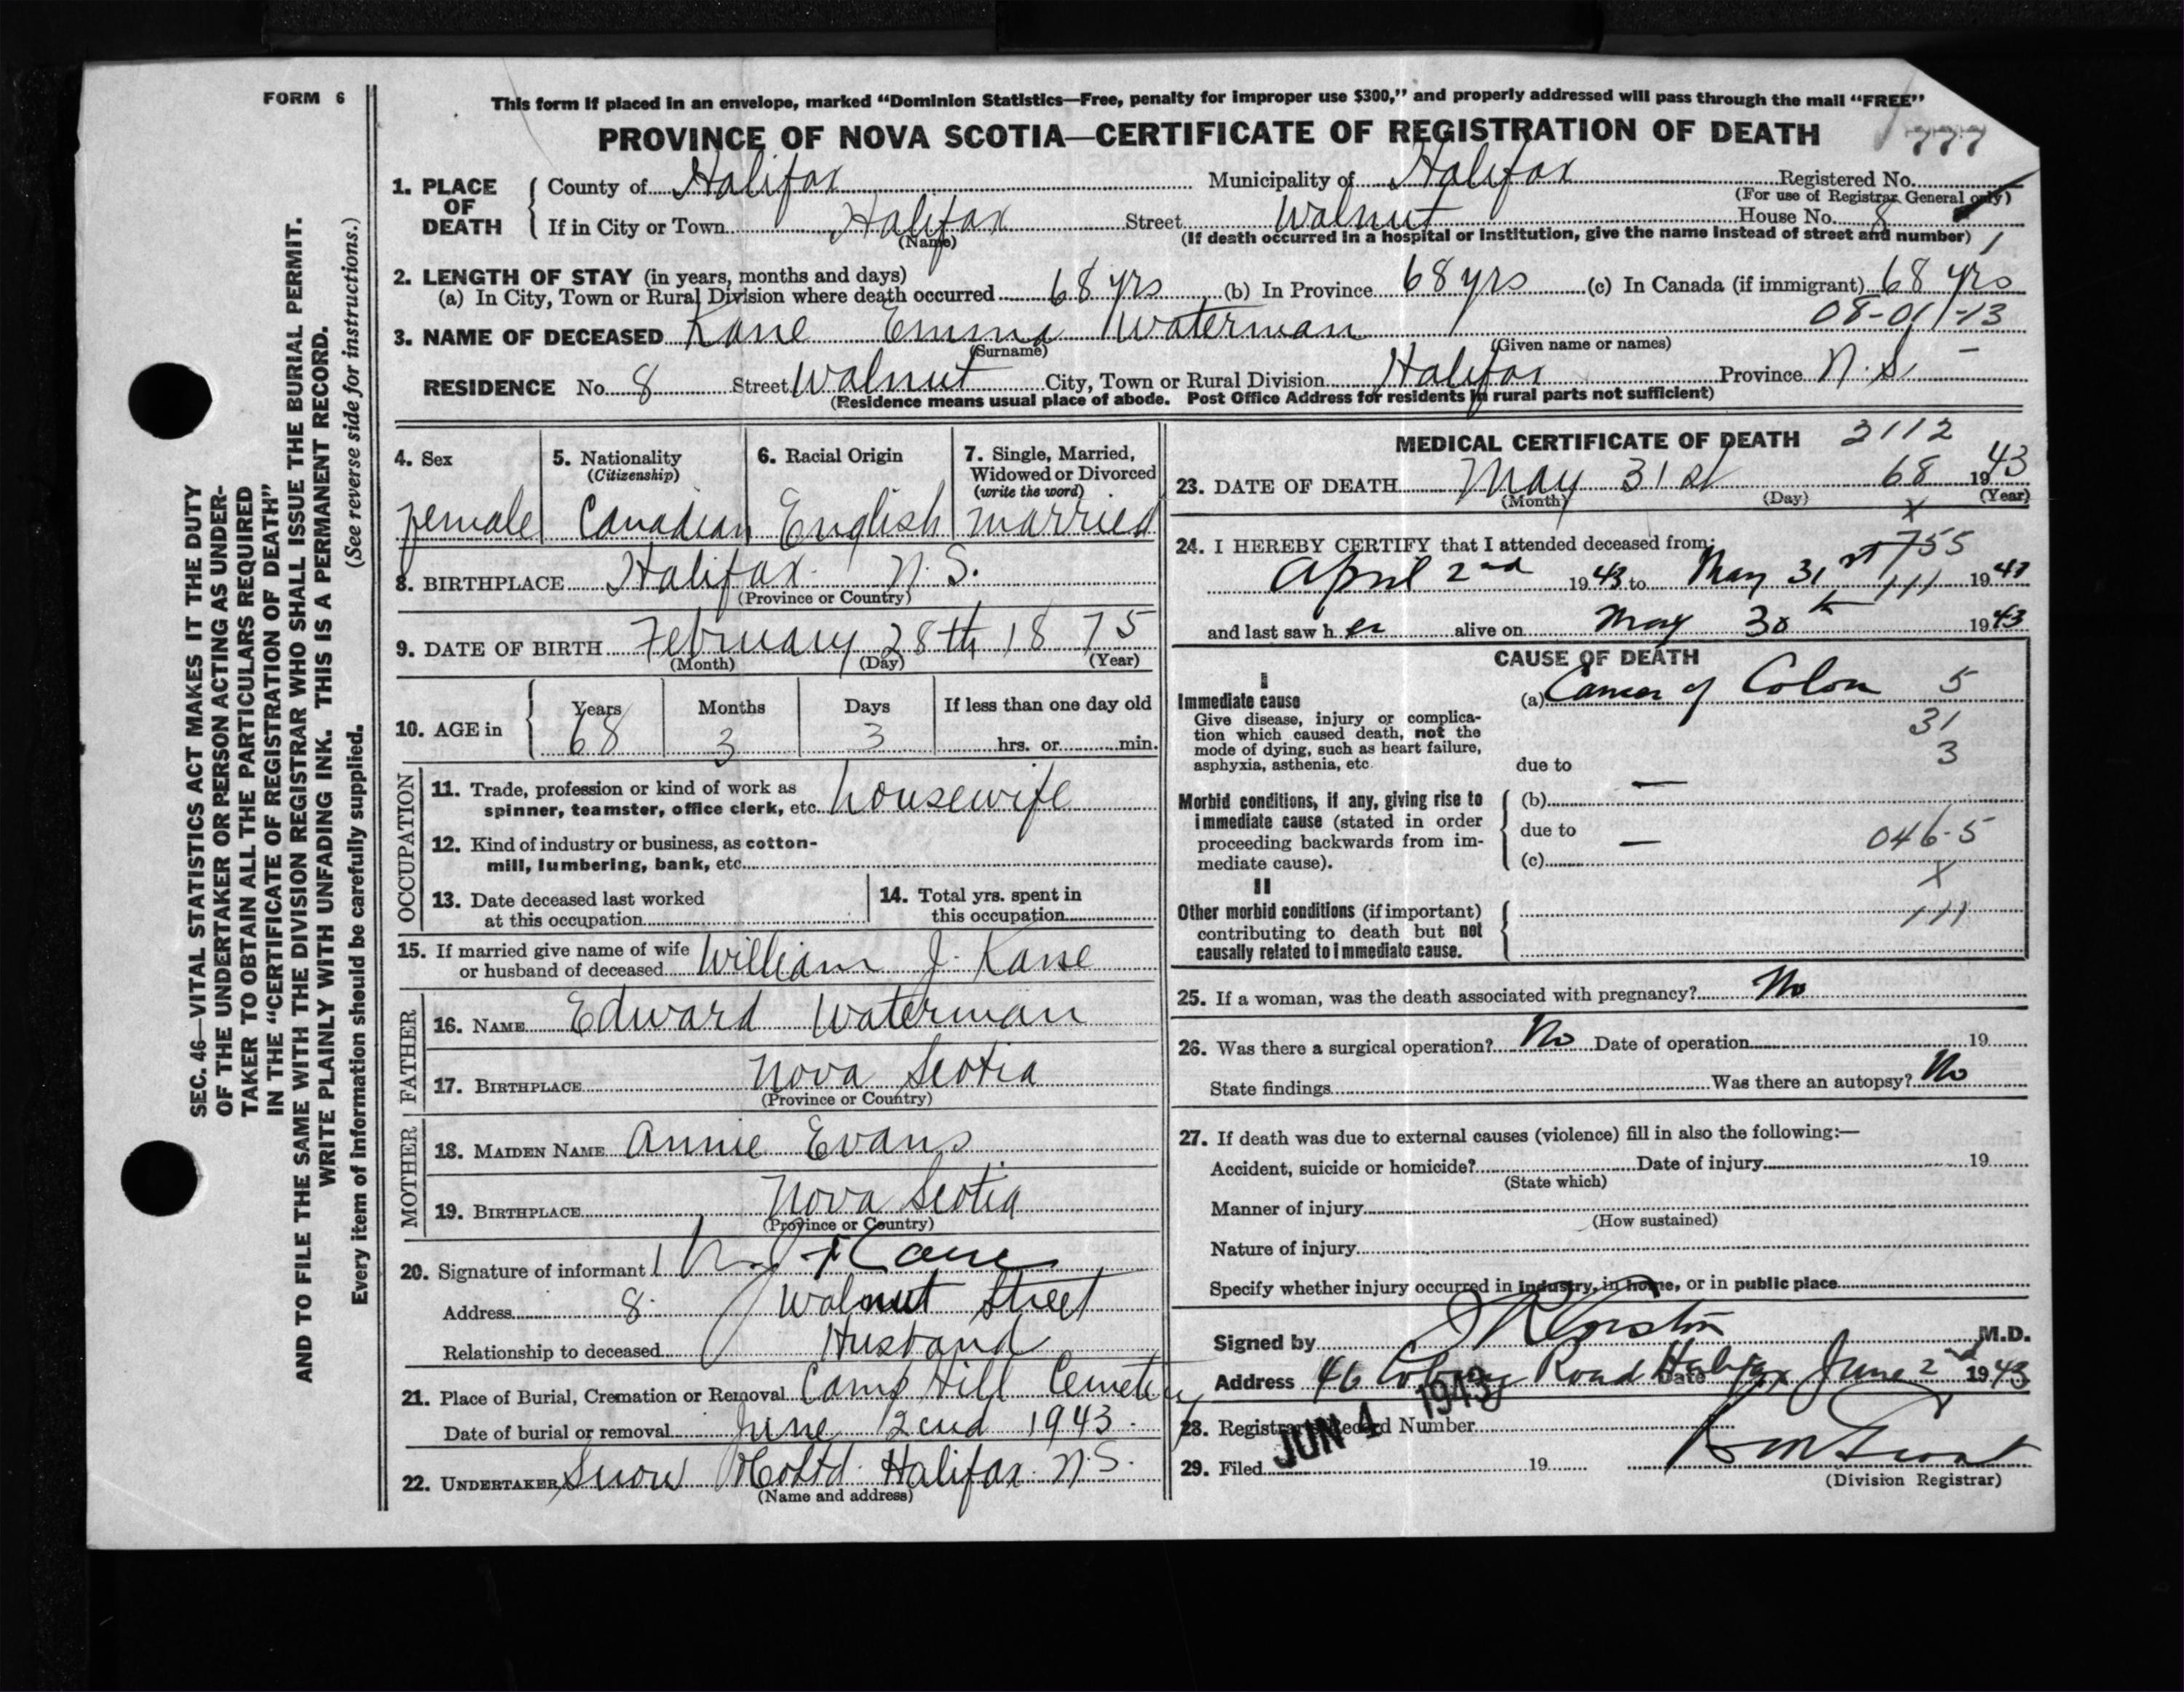 FORM 6
This form if placed in an envelope, marked “Dominion Statistics—Free, penalty for improper use $300,” and properly addressed will pass through the mail “FREE”
PROVINCE OF NOVA SCOTIA—CERTIFICATE OF REGISTRATION OF DEATH
777
1. PLACE OF DEATH
County of Halifax Municipality of Halifax Registered No.
(For use of Registrar General only)
If in City or Town Halifax Street Walnut House No. 8
(Name) (If death occurred in a hospital or institution, give the name instead of street and number)
2. LENGTH OF STAY (in years, months and days)
(a) In City, Town or Rural Division where death occurred 68 yrs (b) In Province 68 yrs (c) In Canada (if immigrant) 68 yrs
08-01-13
3. NAME OF DECEASED Kane Emma Waterman
(Surname) (Given name or names)
RESIDENCE No. 8 Street Walnut City, Town or Rural Division Halifax Province N.S.
(Residence means usual place of abode. Post Office Address for residents in rural parts not sufficient)
4. Sex
female
5. Nationality
(Citizenship)
Canadian
6. Racial Origin
English
7. Single, Married,
Widowed or Divorced
(write the word)
married
8. BIRTHPLACE Halifax N.S.
(Province or Country)
9. DATE OF BIRTH February 28th 1875
(Month) (Day) (Year)
10. AGE in
Years Months Days If less than one day old
68 3 3 hrs. or min.
OCCUPATION
11. Trade, profession or kind of work as
spinner, teamster, office clerk, etc. housewife
12. Kind of industry or business, as cotton-
mill, lumbering, bank, etc.
13. Date deceased last worked
at this occupation
14. Total yrs. spent in
this occupation
15. If married give name of wife
or husband of deceased William J. Kane
FATHER
16. NAME Edward Waterman
17. BIRTHPLACE Nova Scotia
(Province or Country)
MOTHER
18. MAIDEN NAME Annie Evans
19. BIRTHPLACE Nova Scotia
(Province or Country)
20. Signature of informant Kane
Address 8 Walnut Street
Relationship to deceased Husband
21. Place of Burial, Cremation or Removal Camp Hill Cemetery
Date of burial or removal June 2nd 1943
22. UNDERTAKER Snow & Co Ltd. Halifax N.S.
(Name and address)
MEDICAL CERTIFICATE OF DEATH 3112
23. DATE OF DEATH May 31st 68 1943
(Month) (Day) (Year)
X
24. I HEREBY CERTIFY that I attended deceased from:
755
April 2nd 1943 to May 31st 111 1943
and last saw her alive on May 30th 1943
CAUSE OF DEATH
I
Immediate cause
Give disease, injury or complica-
tion which caused death, not the
mode of dying, such as heart failure,
asphyxia, asthenia, etc.
(a) Cancer of Colon 5
31
3
due to —
Morbid conditions, if any, giving rise to
immediate cause (stated in order
proceeding backwards from im-
mediate cause).
(b)
due to — 046-5
(c)
X
II
Other morbid conditions (if important)
contributing to death but not
causally related to immediate cause.
111
25. If a woman, was the death associated with pregnancy? No
26. Was there a surgical operation? No Date of operation 19
State findings Was there an autopsy? No
27. If death was due to external causes (violence) fill in also the following:—
Accident, suicide or homicide? Date of injury 19
(State which)
Manner of injury
(How sustained)
Nature of injury
Specify whether injury occurred in industry, in home, or in public place
Signed by M.D.
Address 46 Road Halifax Date June 2nd 1943
28. Registrar's Record Number
JUN 4 1943
29. Filed 19
(Division Registrar)
SEC. 46—VITAL STATISTICS ACT MAKES IT THE DUTY
OF THE UNDERTAKER OR PERSON ACTING AS UNDER-
TAKER TO OBTAIN ALL THE PARTICULARS REQUIRED
IN THE “CERTIFICATE OF REGISTRATION OF DEATH”
AND TO FILE THE SAME WITH THE DIVISION REGISTRAR WHO SHALL ISSUE THE BURIAL PERMIT.
WRITE PLAINLY WITH UNFADING INK. THIS IS A PERMANENT RECORD.
Every item of information should be carefully supplied. (See reverse side for instructions.)